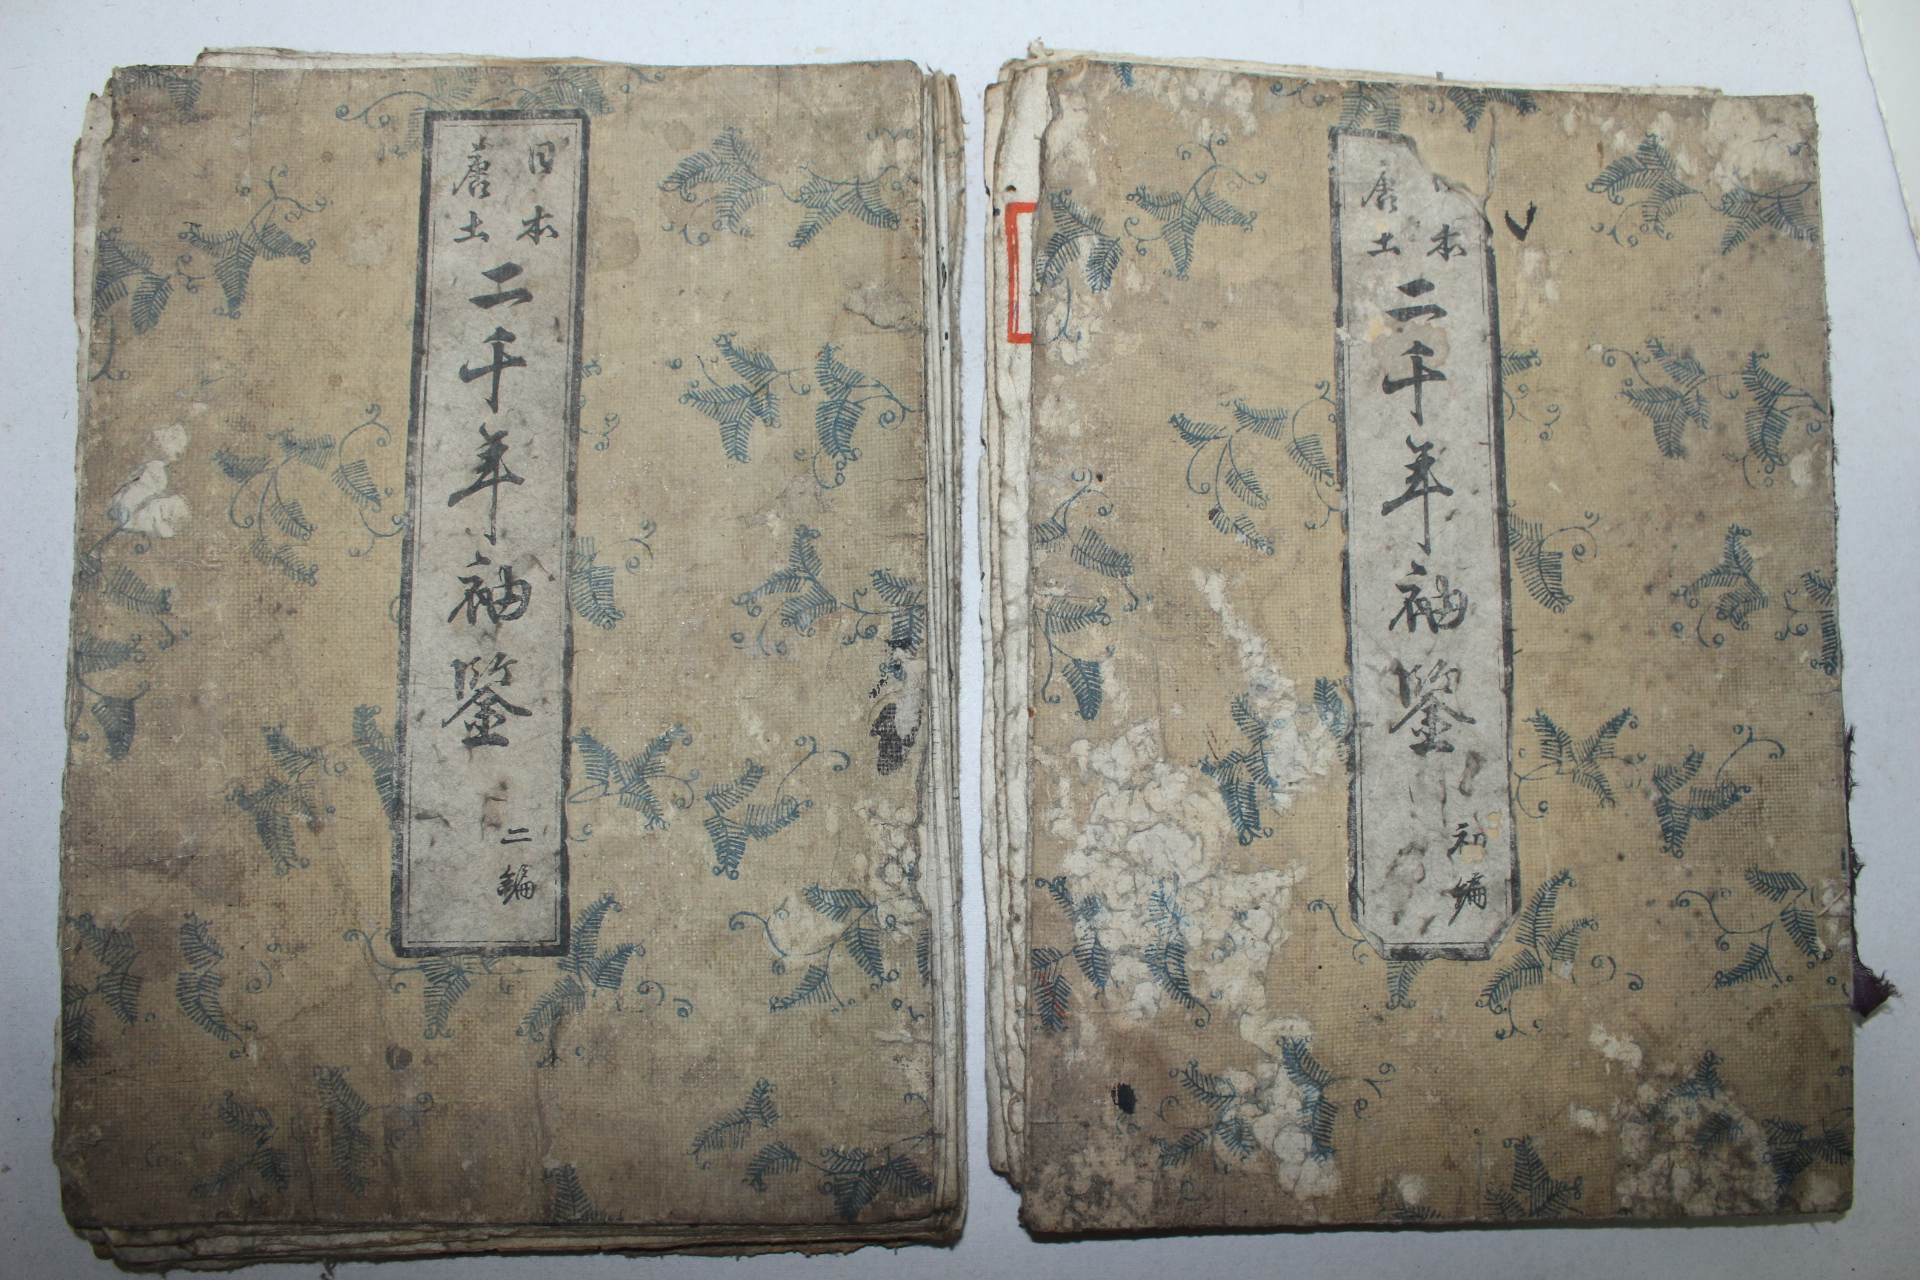 日本
唐土
二千年袖鑒
二編
日本
唐土
二千年袖鑒
初編